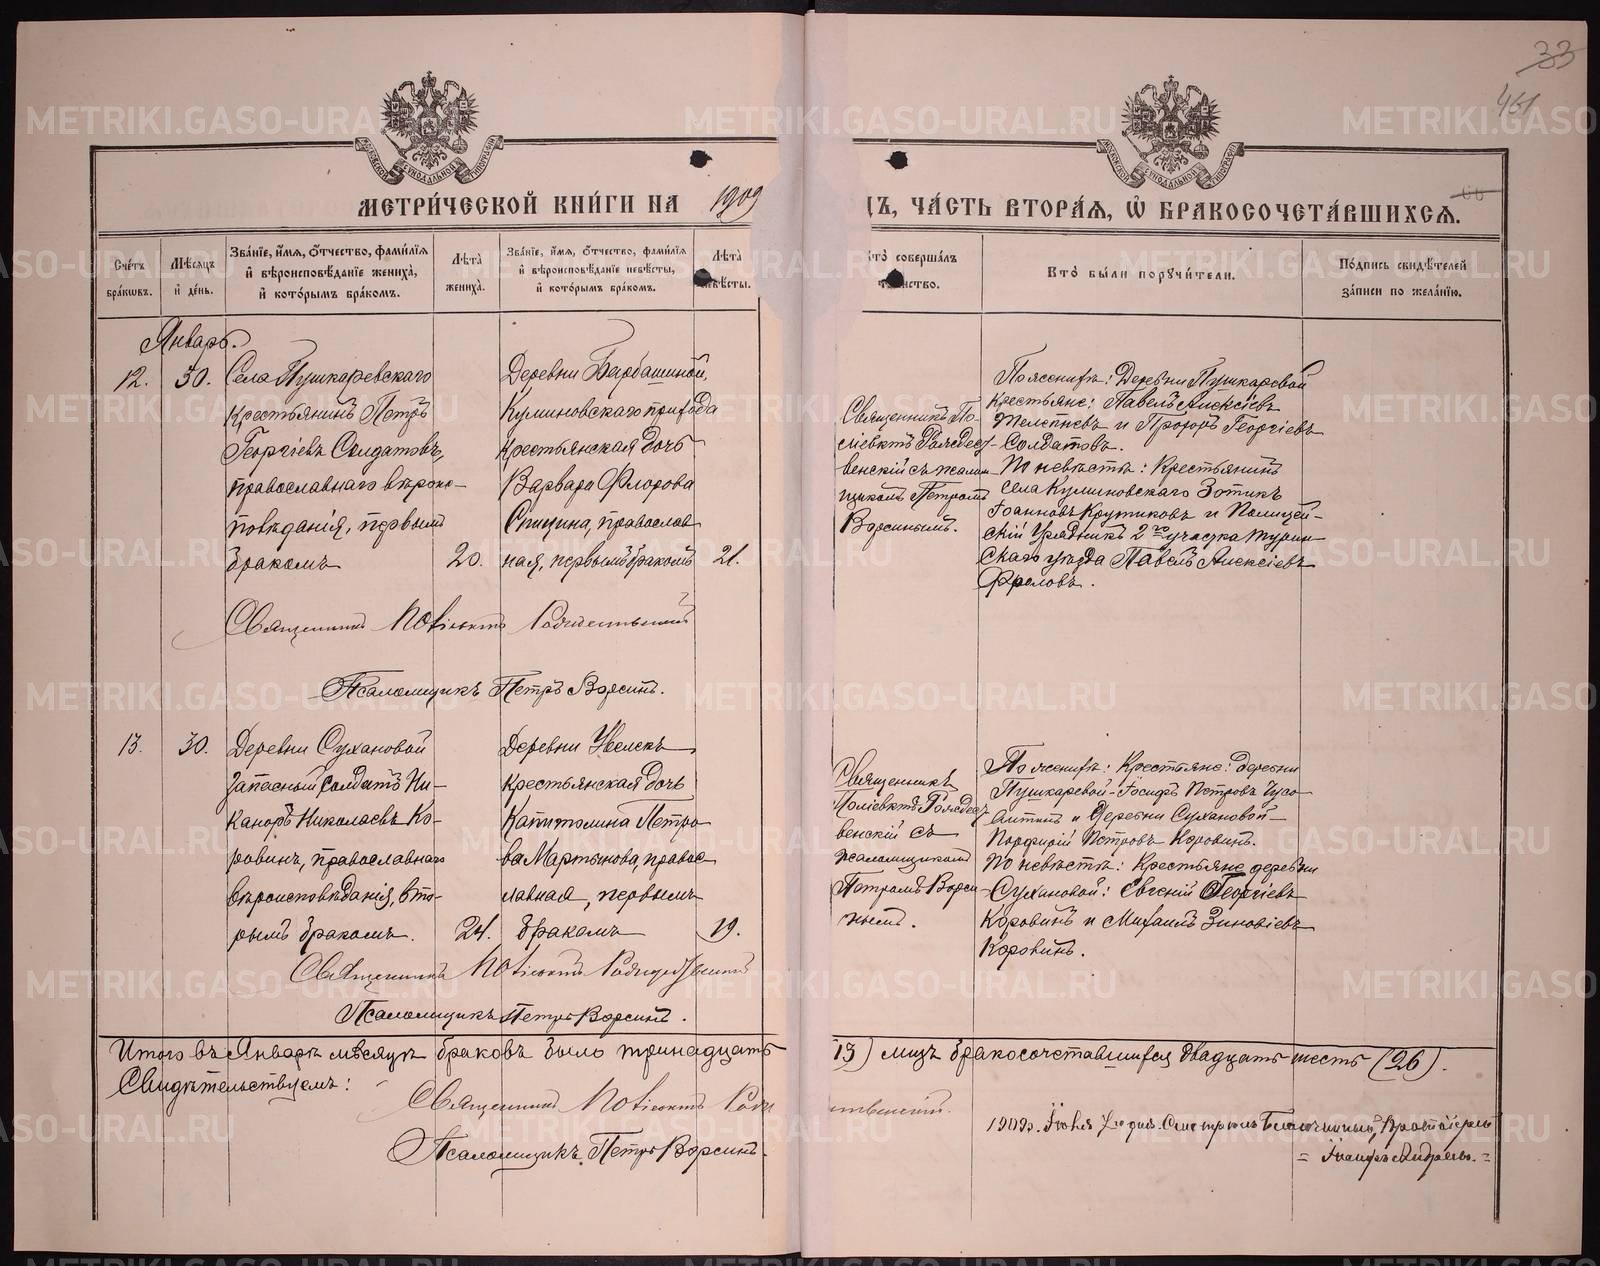 33
461
МЕТРИ́ЧЕСКОЙ КНИ́ГИ НА 1909
ЧА́СТЬ ВТОРА́Я, Ѡ БРАКОСОЧЕТА́ВШИХСЯ.
Сче́тъ бра́кѡвъ.
Мѣ́сяцъ и҆ де́нь.
Зва́нїе, и҆́мя, ѻ҆́тчество, фами́лїя и҆ вѣроисповѣ́данїе жениха̀, и҆ кото́рымъ бра́комъ.
Лѣ́та жениха̀.
Зва́нїе, и҆́мя, ѻ҆́тчество, фами́лїя и҆ вѣроисповѣ́данїе невѣ́сты, и҆ кото́рымъ бра́комъ.
Лѣ́та
соверша́лъ
Кто̀ бы́ли порꙋчи́тели.
По́дпись свидѣ́телей за́писи по жела́нїю.
Январь.
12.
30.
Села Пушкаревскаго
Крестьянинъ Петръ
Георгіевъ Солдатовъ,
православнаго вѣроис-
повѣданія, первымъ
бракомъ
20.
Деревни Барбашиной,
Куминовскаго прихода
Крестьянская дочь
Варвара Флорова
Спицина, православ
ная, первымъ бракомъ
21.
Священникъ По-
ліевктъ Рождест-
венскій съ псалом
щикомъ Петромъ
Ворсинымъ.
По женихѣ: Деревни Пушкаревой
Крестьяне: Павелъ Алексіевъ
и Прохоръ Георгіевъ
Солдатовъ.
По невѣстѣ: Крестьянинъ
села Куминовскаго Зотикъ
Іоанновъ Крутиковъ и Полицей-
скій Урядникъ 2го участка Турин
скаго уѣзда Павелъ Алексіевъ
Фроловъ.
Священникъ Поліевктъ Рождественскій
Псаломщикъ Петръ Ворсинъ.
13.
30.
Деревни Сухановой
Запасный солдатъ Ни-
каноръ Николаевъ Ко-
ровинъ, православнаго
вѣроисповѣданія, вто-
рымъ бракомъ.
24.
Деревни
Крестьянская дочь
Капитолина Петро
ва Мартынова, правос
лавная, первымъ
бракомъ
19.
Священникъ
Поліевктъ Рождест
венскій съ
псаломщикомъ
Петромъ Ворси-
нымъ.
По женихѣ: Крестьяне: деревни
Пушкаревой - Іосифъ Петровъ
и Деревни Сухановой
Порфирій Петровъ Коровинъ.
По невѣстѣ: Крестьяне деревни
Сухановой: Евгеній Георгіевъ
Коровинъ и Михаилъ Зиновіевъ
Коровинъ.
Священникъ Поліевктъ Рождественскій
Псаломщикъ Петръ Ворсинъ.
Итого въ Январѣ мѣсяцѣ браковъ было тринадцать 13) лицъ бракосочетавшихся двадцать шесть (26).
Свидѣтельствуемъ:
Священникъ Поліевктъ
Псаломщикъ Петръ Ворсинъ.
1909г. Іюля
METRIKI.GASO-URAL.RU